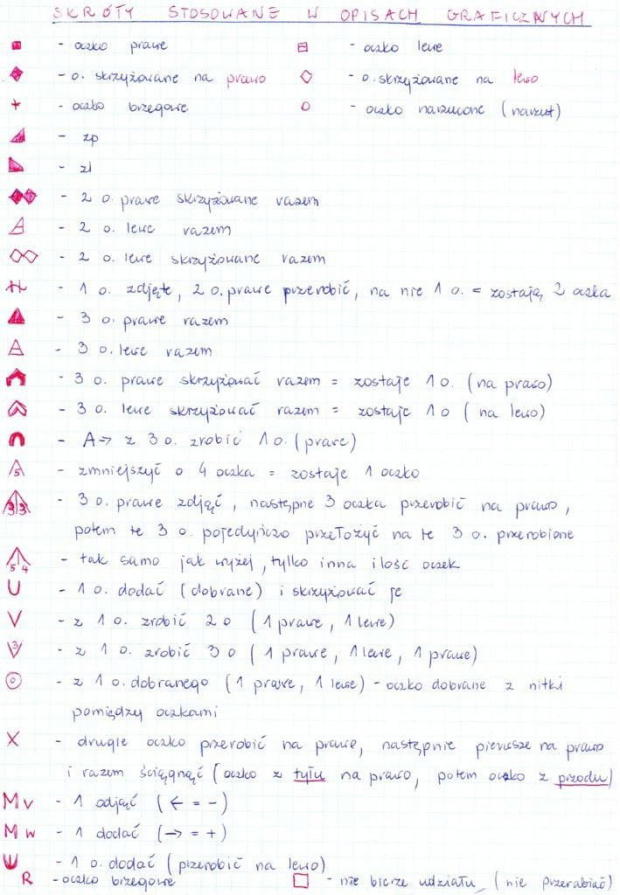 SKRÓTY STOSOWANE W OPISACH GRAFICZNYCH
- oczko prawe - oczko lewe
- o. skrzyżowane na prawo - o. skrzyżowane na lewo
- oczko brzegowe - oczko narzucone (narzut)
- zp
- zl
- 2 o. prawe skrzyżowane razem
- 2 o. lewe razem
- 2 o. lewe skrzyżowane razem
- 1 o. zdjęte, 2 o. prawe przerobić, na nie 1 o. = zostają 2 oczka
- 3 o. prawe razem
- 3 o. lewe razem
- 3 o. prawe skrzyżować razem = zostaje 1 o. (na prawo)
- 3 o. lewe skrzyżować razem = zostaje 1 o (na lewo)
- A => z 3 o. zrobić 1 o. (prawe)
5 - zmniejszyć o 4 oczka = zostaje 1 oczko
3 3 - 3 o. prawe zdjąć, następne 3 oczka przerobić na prawo,
potem te 3 o. pojedyńczo przełożyć na te 3 o. przerobione
5 4 - tak samo jak wyżej, tylko inna ilość oczek
U - 1 o. dodać (dobrane) i skrzyżować je
V - z 1 o. zrobić 2 o (1 prawe, 1 lewe)
3 - z 1 o. zrobić 3 o (1 prawe, 1 lewe, 1 prawe)
- z 1 o. dobranego (1 prawe, 1 lewe) - oczko dobrane z nitki
pomiędzy oczkami
X - drugie oczko przerobić na prawe, następnie pierwsze na prawo
i razem ściągnąć (oczko z tyłu na prawo, potem oczko z przodu)
Mv - 1 odjąć (← = -)
Mw - 1 dodać (→ = +)
- 1 o. dodać (przerobić na lewo)
R - oczko brzegowe - nie bierze udziału (nie przerabiać)